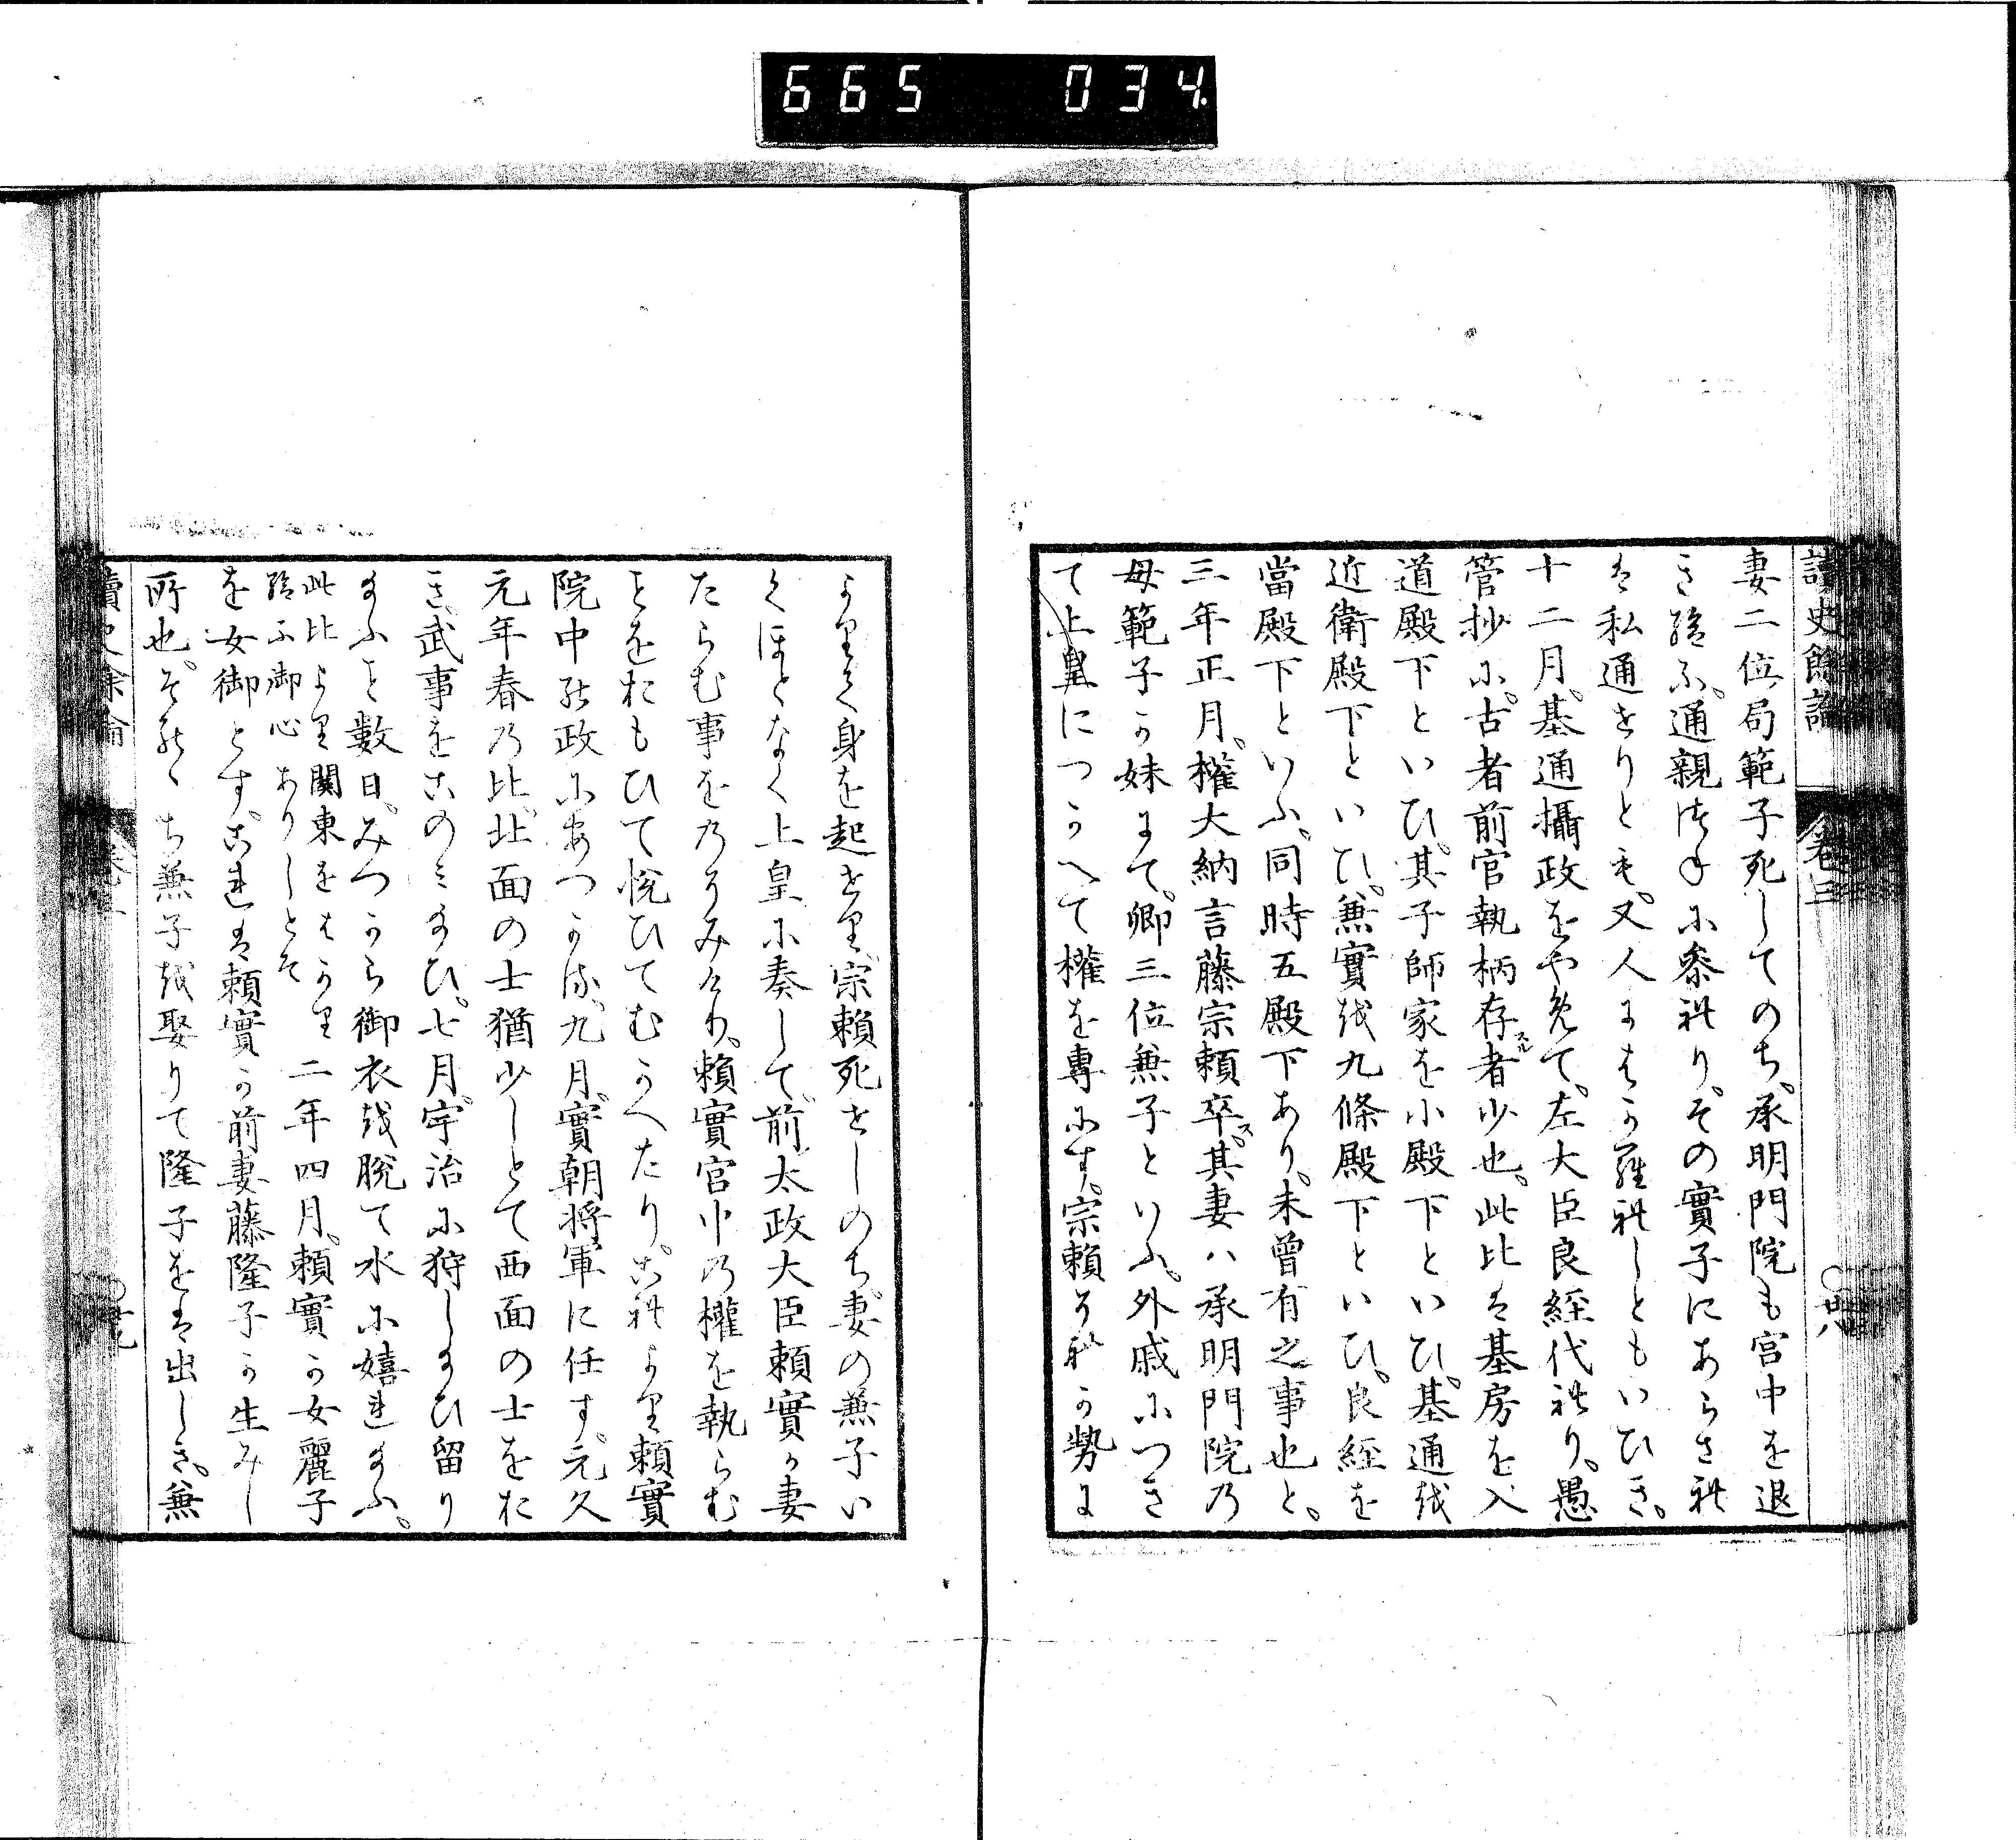 665 034.
讀史餘論
卷三
廿八
妻二位局範子死してのち、承明門院も宮中を退
き給ふ。通親は其に參れり。その實子にあらされ
は私通せりとも。又人にはかられしともいひき。
十二月。基通攝政をやめて。左大臣良経代れり。愚
管抄ふ。古者前官執柄存スル者少也。此比は基房を入
道殿下といひ。其子師家を小殿下といひ。基通を
近衛殿下といひ。兼實を九條殿下といひ。良経を
當殿下といふ。同時五殿下あり。未曾有之事也と。
三年正月。權大納言藤宗頼卒ス。其妻ハ承明門院の
母範子か妹にて。卿三位兼子といふ。外戚につき
て上皇につかへて權を專にす。宗頼それか勢に
よりて身を起せり。宗頼死せしのち。妻の兼子い
くほとなく上皇に奏して。前太政大臣頼實か妻
たらむ事をのそみけり。頼實宮中の權を執らむ
ことをおもひて悅ひてむかへたり。これより頼實
院中の政にあつかる。九月。實朝將軍に任す。元久
元年春の比。北面の士猶少しとて西面の士をお
き。武事をこのみ給ひ。七月。宇治に狩し給ひ留り
給ふこと數日。みつから御衣を脫て水に嬉れ給ふ。
此比より關東をはかり
給ふ御心ありしとそ
二年四月。頼實か女麗子
を女御とす。これは頼實か前妻藤隆子か生みし
所也。そのゝち兼子を娶りて隆子をは出しき。兼
讀史余論
廿九